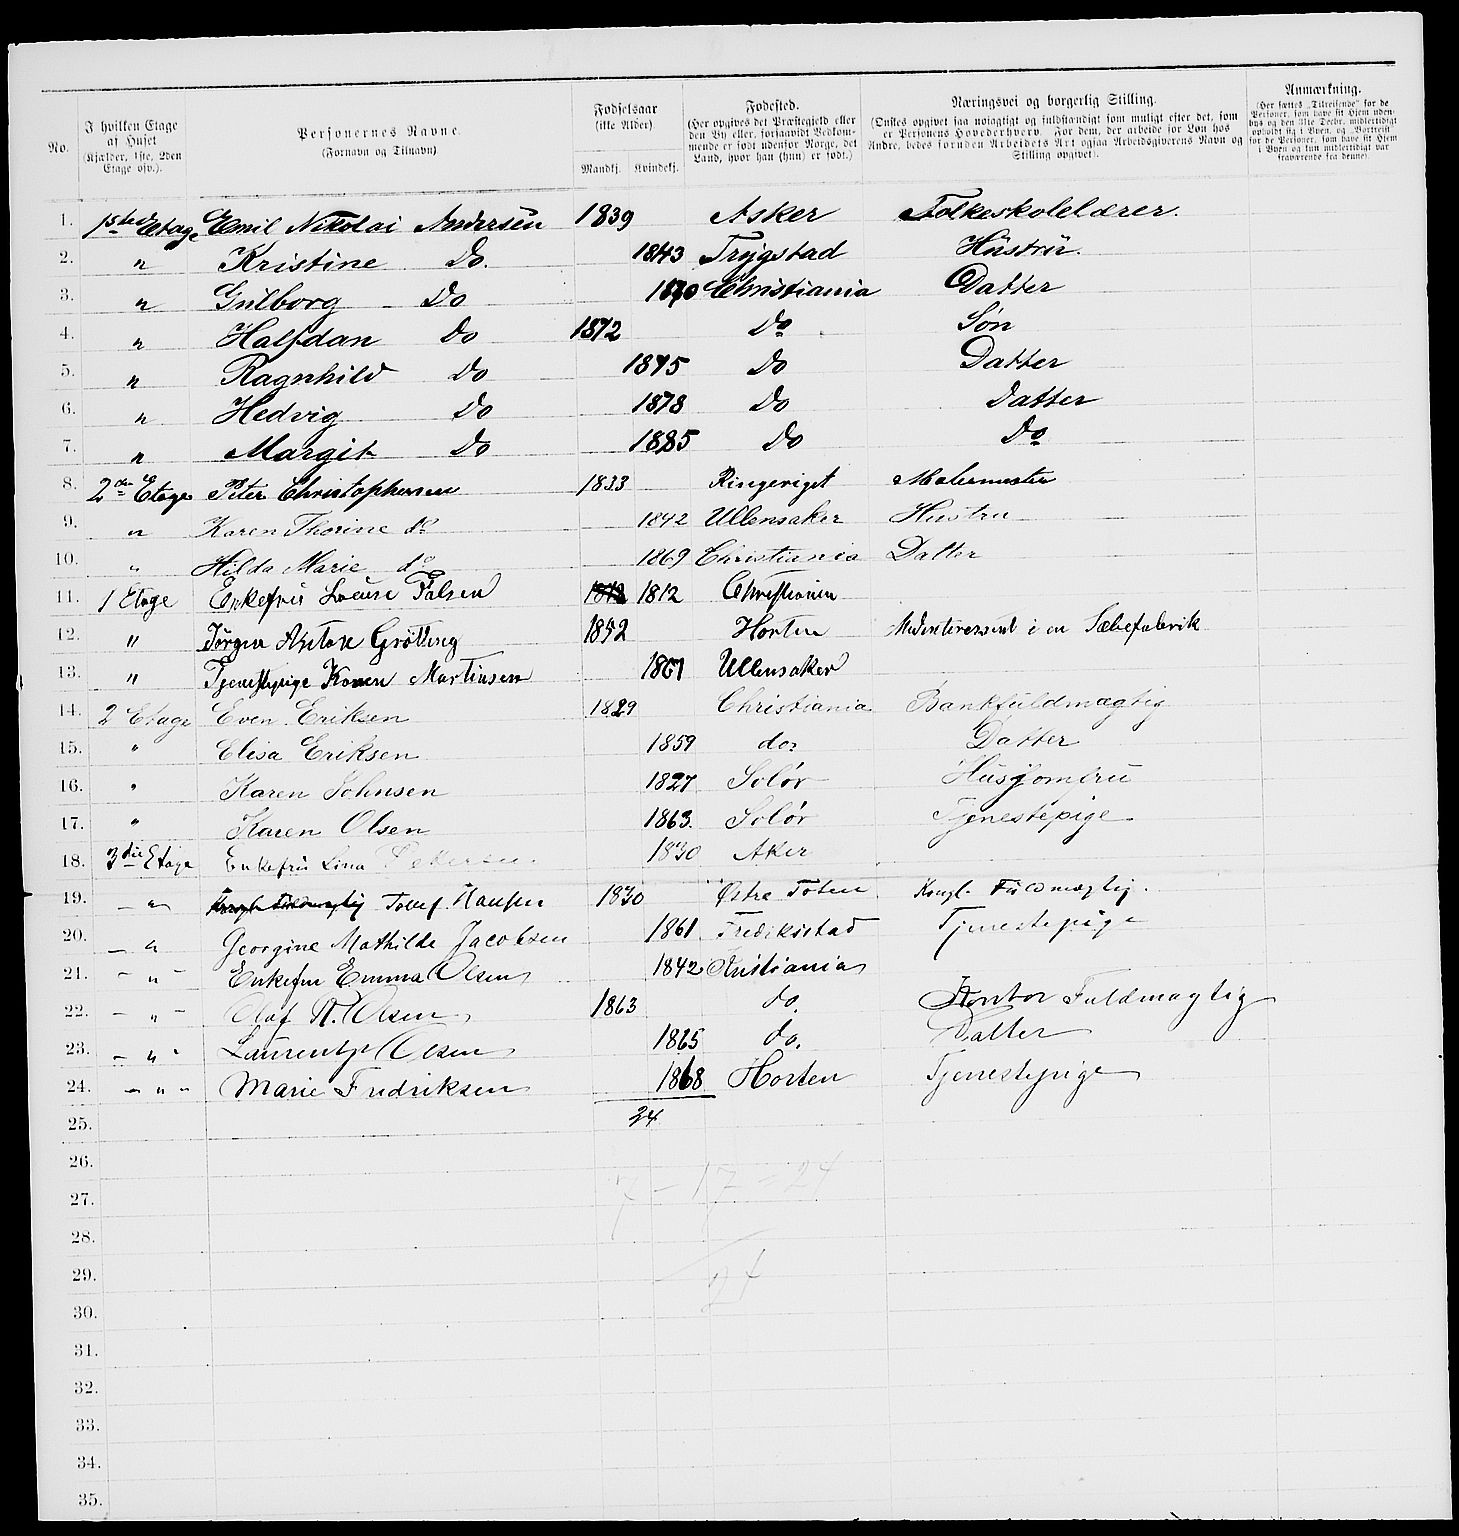 No.
I hvilken Etage af Huset (Kjælder, 1ste, 2den Etage osv.).
Personernes Navne. (Fornavn og Tilnavn)
Fødselsaar (ikke Alder) Mandkj. Kvindekj.
Fødested. (Her opgives det Præstegjeld eller den By eller, forsaavidt Vedkommende er født udenfor Norge, det Land, hvor han (hun) er født.)
Næringsvei og borgerlig Stilling. (Ønskes opgivet saa nøiagtigt og fuldstændigt som muligt efter det, som er Personens Hovederhverv. For dem, der arbeide for Løn hos Andre, bedes foruden Arbeidets Art ogsaa Arbeidsgiverens Navn og Stilling opgivet).
Anmærkning. (Her sættes „Tilreisende" for de Personer, som have sit Hjem udenbys og den 31te Decbr. midlertidigt opholdt sig i Byen, og „Bortreist" for de Personer, som have sit Hjem i Byen og kun midlertidigt var fraværende fra denne).
1. 1ste Etage Emil Nikolai Andersen 1839 Asker Folkeskolelærer.
2. " Kristine Do. 1843 Trygstad Hustru.
3. " Gulborg Do 1870 Christiania Datter
4. " Halfdan Do 1872 Do Søn
5. " Ragnhild Do 1875 Do Datter
6. " Hedvig Do 1878 Do Datter
7. " Margit Do 1885 Do Do
8. 2den Etage Peter Christophersen 1833 Ringeriget Malermester
9. " Karen Thorine do 1842 Ullensaker Hustru
10. " Hilda Marie do 1869 Christiania Datter
11. 1 Etage Enkefru Louise Falsen 1812 Christiania
12. " Jørgen Anton Grötting 1842 Horten Medinteressent i en Sæbefabrik
13. " Tjenestepige Karen Martinsen 1861 Ullensaker
14. 2 Etage Even Eriksen 1829 Christiania Bankfuldmægtig
15. " Elisa Eriksen 1859 do. Datter
16. " Karen Johnsen 1827 Solør Husjomfru
17. " Karen Olsen 1863. Solør Tjenestepige
18. 3die Etage Enkefru Lina 1830 Aker
19. " Hansen 1830 Østre Toten Kongl. Fuldmægtig.
20. " Georgine Mathilde Jacobsen 1861 Fredikstad Tjenestepige
21. " Enkefru Emma Olsen 1842 Kristiania
22. " Olaf Olsen 1863 do. Kontor Fuldmægtig
23. " Laurentze Olsen 1865 do. Datter
24. " Marie Fredriksen 1868 Horten Tjenestepige
25. 24
26. 7 – 17 = 24
27.
28.
29. 24
30.
31.
32.
33.
34.
35.